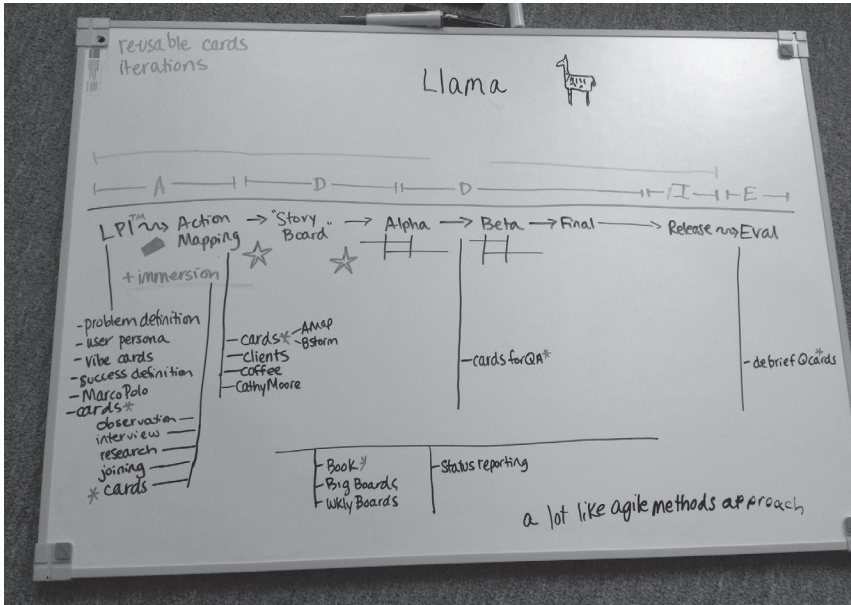 re-usable cards
iterations
Llama
A D D /I E
LPI™ Action Mapping "Story Board" Alpha Beta Final Release Eval
+ immersion
-problem definition
-user persona
-vibe cards
-success definition
-Marco Polo
-cards*
observation
interview
research
joining
* cards
-cards* AMap
Bstorm
-clients
-coffee
-Cathy Moore
-cards for QA*
-debrief Qcards*
-Book*
-Big Boards
-Wkly Boards
-Status reporting
a lot like agile methods approach